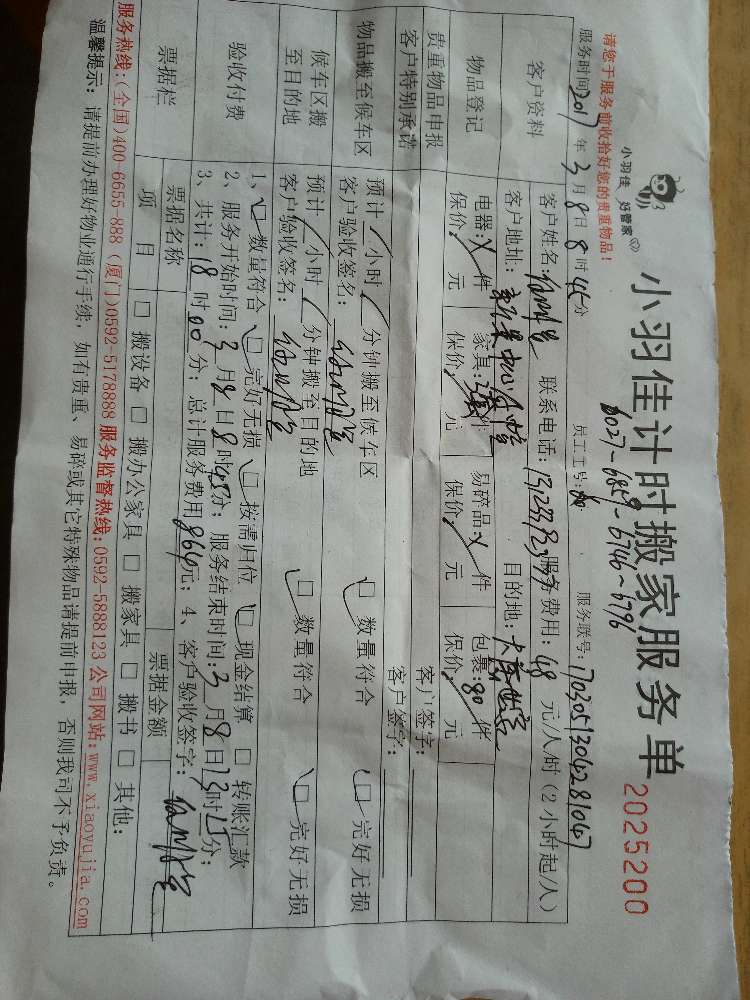 小羽佳 好管家
请您于服务前收拾好您的贵重物品！
小羽佳计时搬家服务单
2025200
6027-6859-6746-6796
服务时间2017年3月8日8时45分 员工工号： 服务联号：
客户资料
客户姓名： 联系电话： 服务费用：48元/人/时（2小时起/人）
客户地址： 目的地：
物品登记
电器： 件 家具： 件 易碎品： 件 包裹：80件
保价： 元 保价： 元 保价： 元 保价： 元
贵重物品申报 客户签字：
客户特别承诺 客户签字：
物品搬至候车区
预计 小时 分钟搬至候车区
客户验收签名： □ 数量符合 □ 完好无损
候车区搬至目的地
预计 小时 分钟搬至目的地
客户验收签名： □ 数量符合 □ 完好无损
验收付费
1、□ 数量符合 □ 完好无损 □ 按需归位 □ 现金结算 □ 转账汇款
2、服务开始时间：3月8日8时45分；服务结束时间：3月8日13时15分；
3、共计：18时00分；总计服务费用864元；4、客户验收签字：
票据栏
票据名称 票据金额
项目 □ 搬设备 □ 搬办公家具 □ 搬家具 □ 搬书 □ 其他：
服务热线：(全国)400-6655-888 (厦门)0592-5178888 服务监督热线：0592-5888123 公司网站：www.xiaoyujia.com
温馨提示：请提前办理好物业通行手续，如有贵重、易碎或其它特殊物品请提前申报，否则我司不予负责。